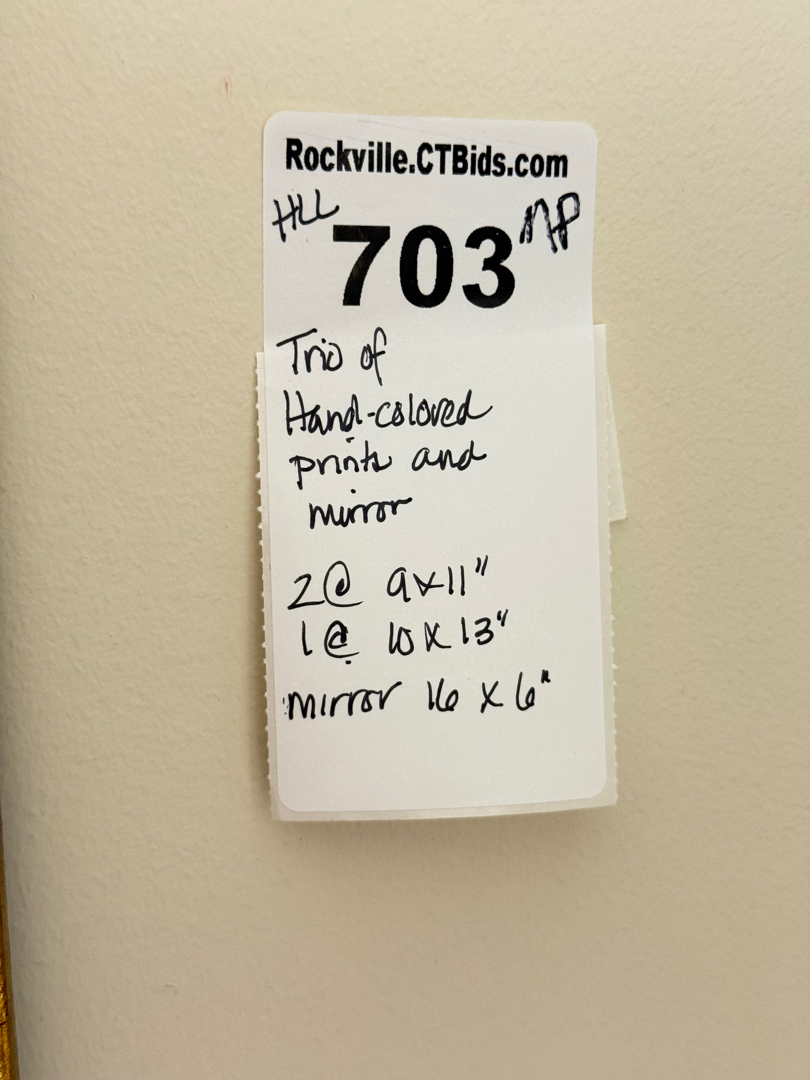 Rockville.CTBids.com
HLL 703 NP
Trio of
Hand-colored
prints and
mirror
2@ 9x11"
1@ 10x13"
mirror 16 x 6"